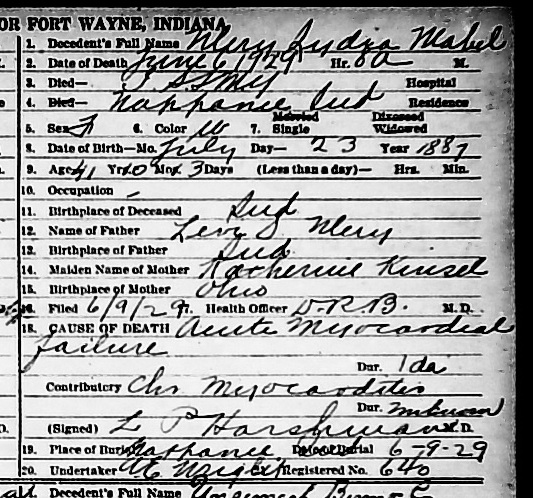 OR FORT WAYNE, INDIANA,
1. Decedent's Full Name Mery Lydia Mabel
2. Date of Death June 6 1929 Hr. 8 A M.
3. Died— Hospital
4. Died— Nappanee Ind Residence
Married Divorced
5. Sex F 6. Color W 7. Single Widowed
8. Date of Birth—Mo. July Day— 23 Year 1887
9. Age 41 Yrs 10 Mos. 13 Days (Less than a day)— Hrs. Min.
10. Occupation –
11. Birthplace of Deceased Ind
12. Name of Father Levi D Mery
13. Birthplace of Father Ind
14. Maiden Name of Mother Katherine Kinsel
15. Birthplace of Mother Ohio
16. Filed 6/9/29 17. Health Officer D.R.B. M.D.
18. CAUSE OF DEATH Acute Myocardial
failure
Dur. 1 da
Contributory Chr Myocarditis
Dur. unknown
(Signed) L P Harshman M.D.
19. Place of Burial Nappanee Date of Burial 6-9-29
20. Undertaker Wright Registered No. 640
Decedent's Full Name